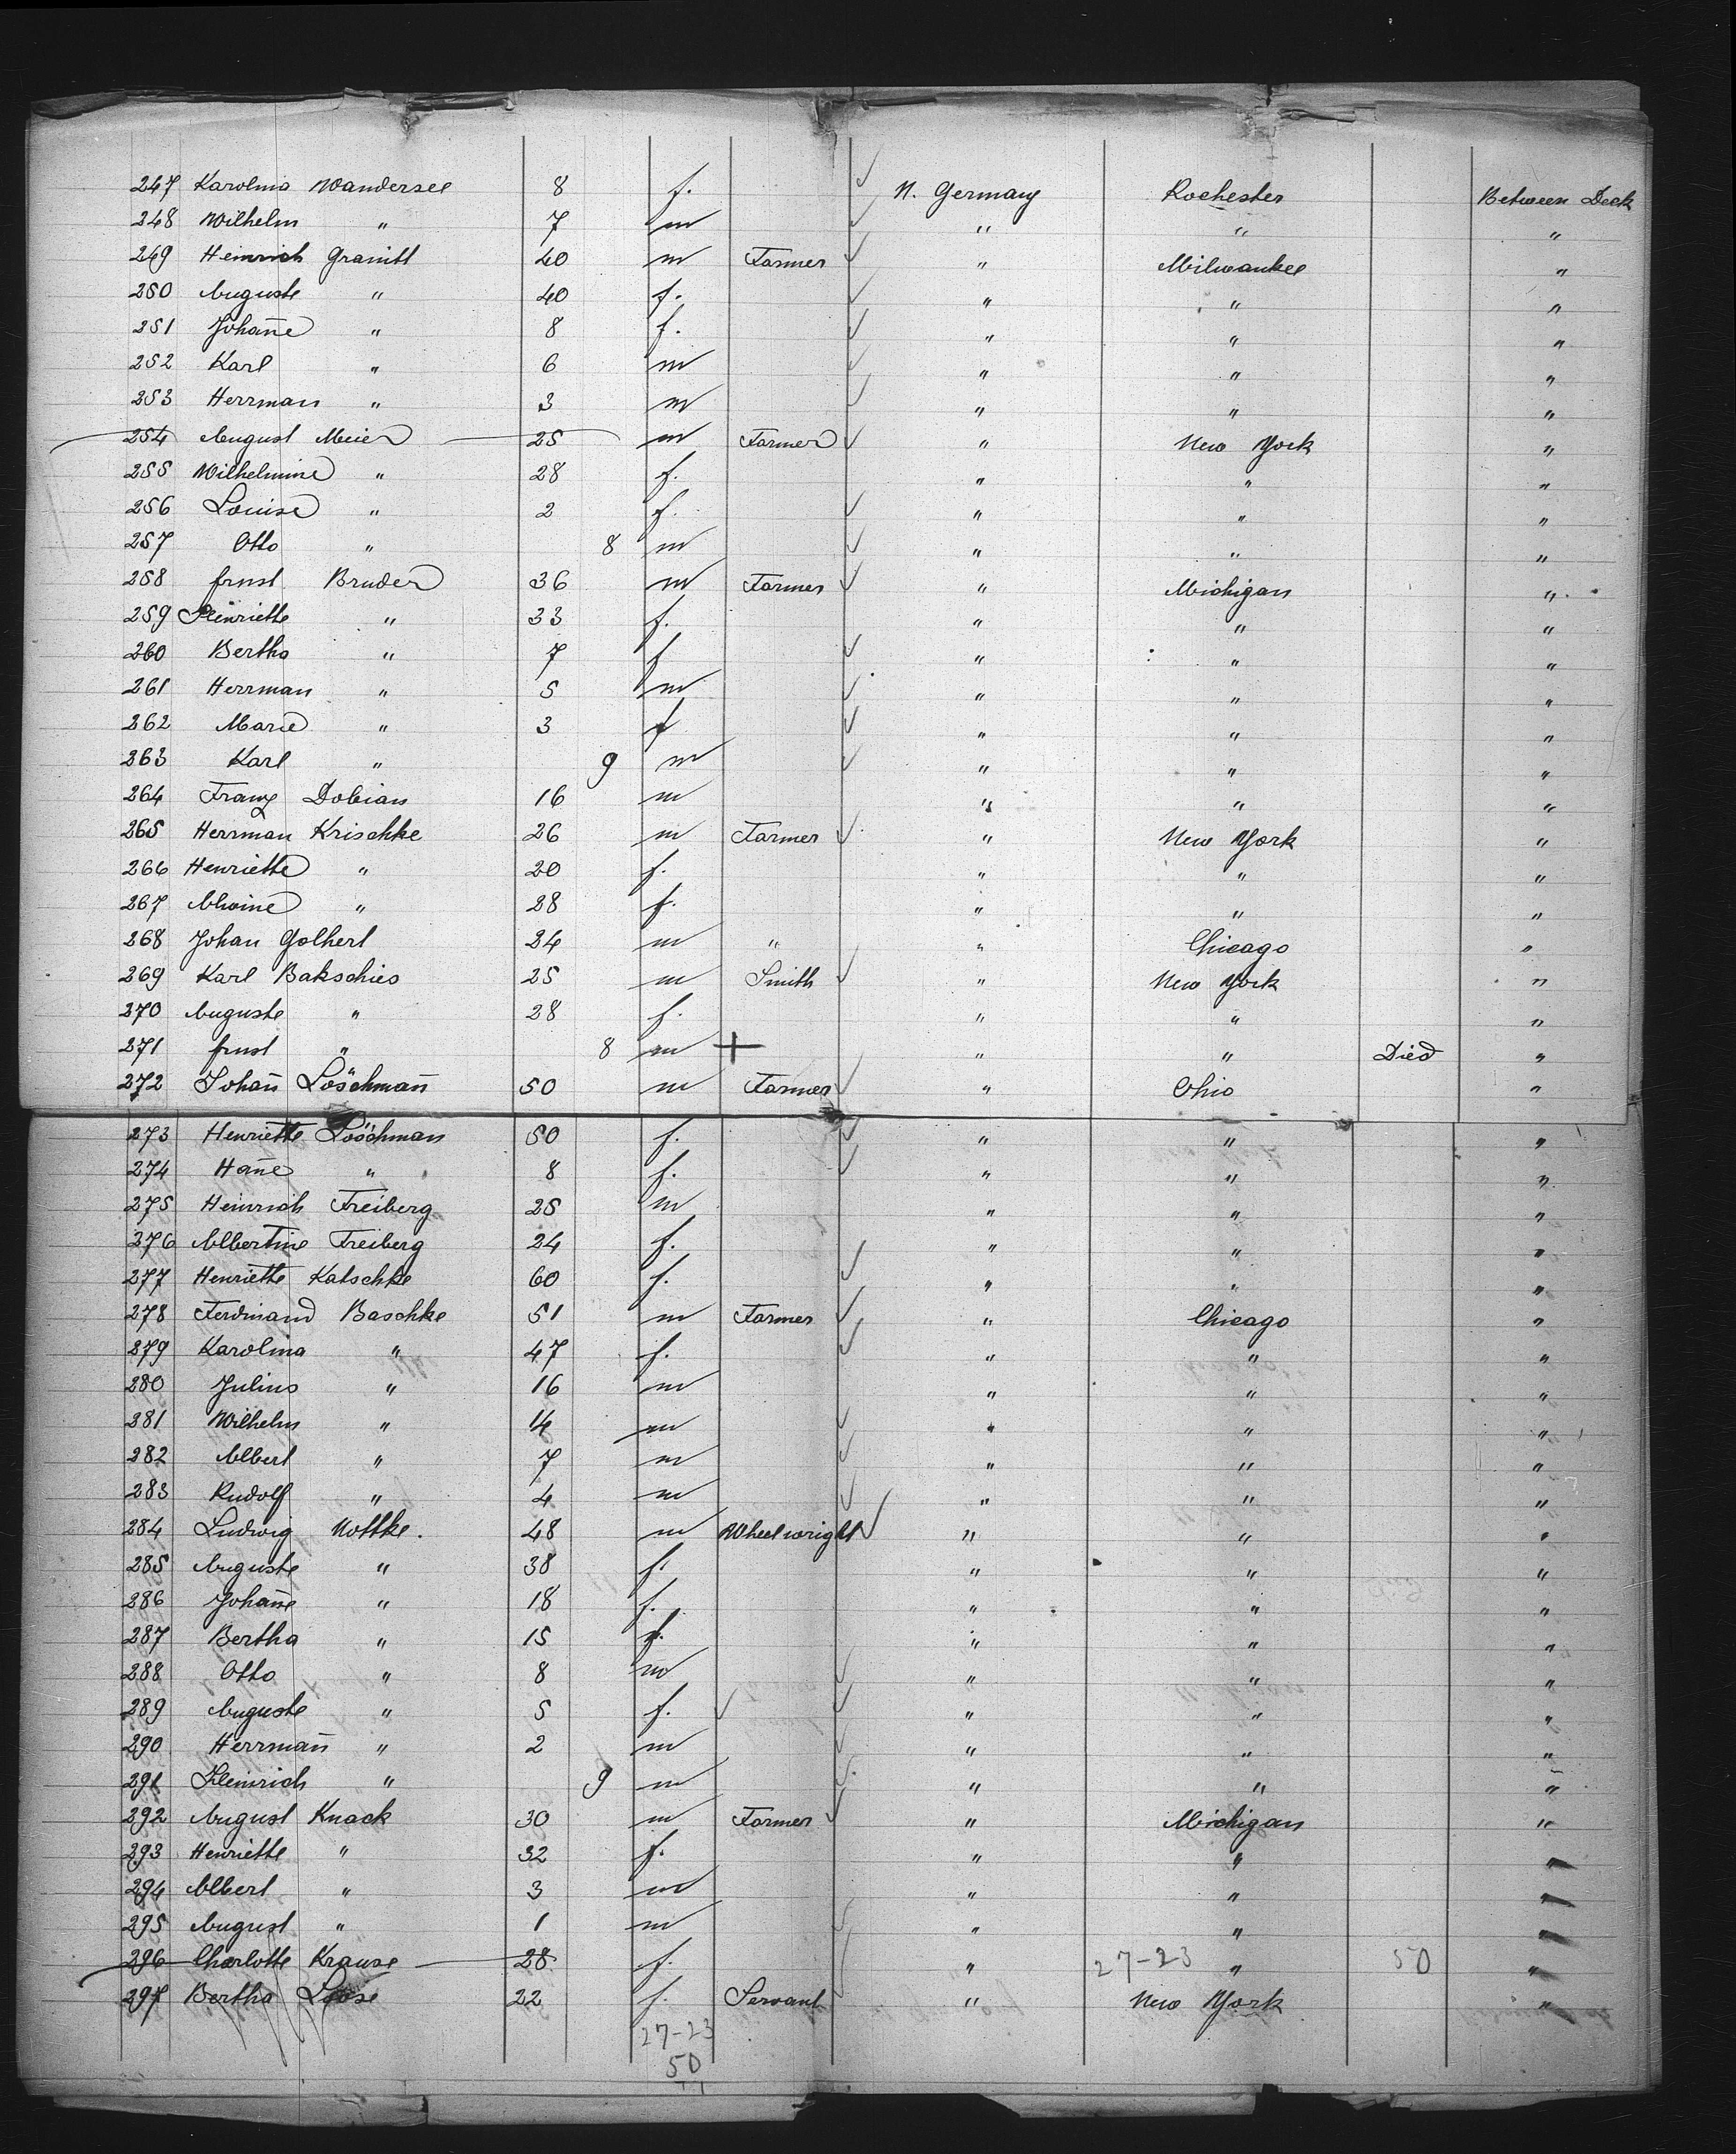 247 Karolina Wandersee 8 f. N. Germany Rochester Between Deck
248 Wilhelm " 7 m " " "
249 Heinrich Granitt 40 m Farmer " Milwaukee "
250 Auguste " 40 f. " " "
251 Johañe " 8 f. " " "
252 Karl " 6 m " " "
253 Herrman " 3 m " " "
254 August Meier 25 m Farmer " New York "
255 Wilhelmine " 28 f. " " "
256 Louise " 2 f. " " "
257 Otto " 8 m " " "
258 Ernst Bruder 36 m Farmer " Michigan "
259 Henriette " 33 f. " " "
260 Bertha " 7 f " " "
261 Herrman " 5 m " " "
262 Marie " 3 f " " "
263 Karl " 9 m " " "
264 Franz Dobian 16 m " " "
265 Herrman Krischke 26 m Farmer " New York "
266 Henriette " 20 f. " " "
267 " 28 f. " " "
268 Johan Golhert 24 m " " Chicago "
269 Karl Bakschies 25 m Smith " New York "
270 Auguste " 28 f. " " "
271 Ernst " 8 m + " " Died "
272 Johañ Löschmañ 50 m Farmer " Ohio "
273 Henriette Löschman 50 f. " " "
274 Hañe " 8 f. " " "
275 Heinrich Freiberg 25 m " " "
276 Albertine Freiberg 24 f. " " "
277 Henriette Katschke 60 f. " " "
278 Ferdinand Baschke 51 m Farmer " Chicago "
279 Karolina " 47 f. " " "
280 Julius " 16 m " " "
281 Wilhelm " 14 m " " "
282 Albert " 7 m " " "
283 Rudolf " 4 m " " "
284 Ludwig Nottke. 48 m Wheelwright " " "
285 Auguste " 38 f. " " "
286 Johañe " 18 f. " " "
287 Bertha " 15 f. " " "
288 Otto " 8 m " " "
289 Auguste " 5 f. " " "
290 Herrmañ " 2 m " " "
291 Heinrich " 9 m " " "
292 August Knack 30 m Farmer " Michigan "
293 Henriette " 32 f. " " "
294 Albert " 3 m " " "
295 August " 1 m " " "
296 Charlotte Krause 28 f. " 27-23 " 50 "
297 Bertha Loose 22 f. Servant " New York "
27-23
50